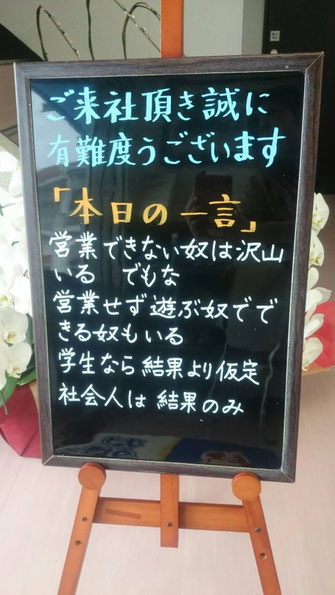 ご来社頂き誠に
有難度うございます
「本日の一言」
営業できない奴は沢山
いる でもな
営業せず遊ぶ奴でで
きる奴もいる
学生なら結果より仮定
社会人は結果のみ